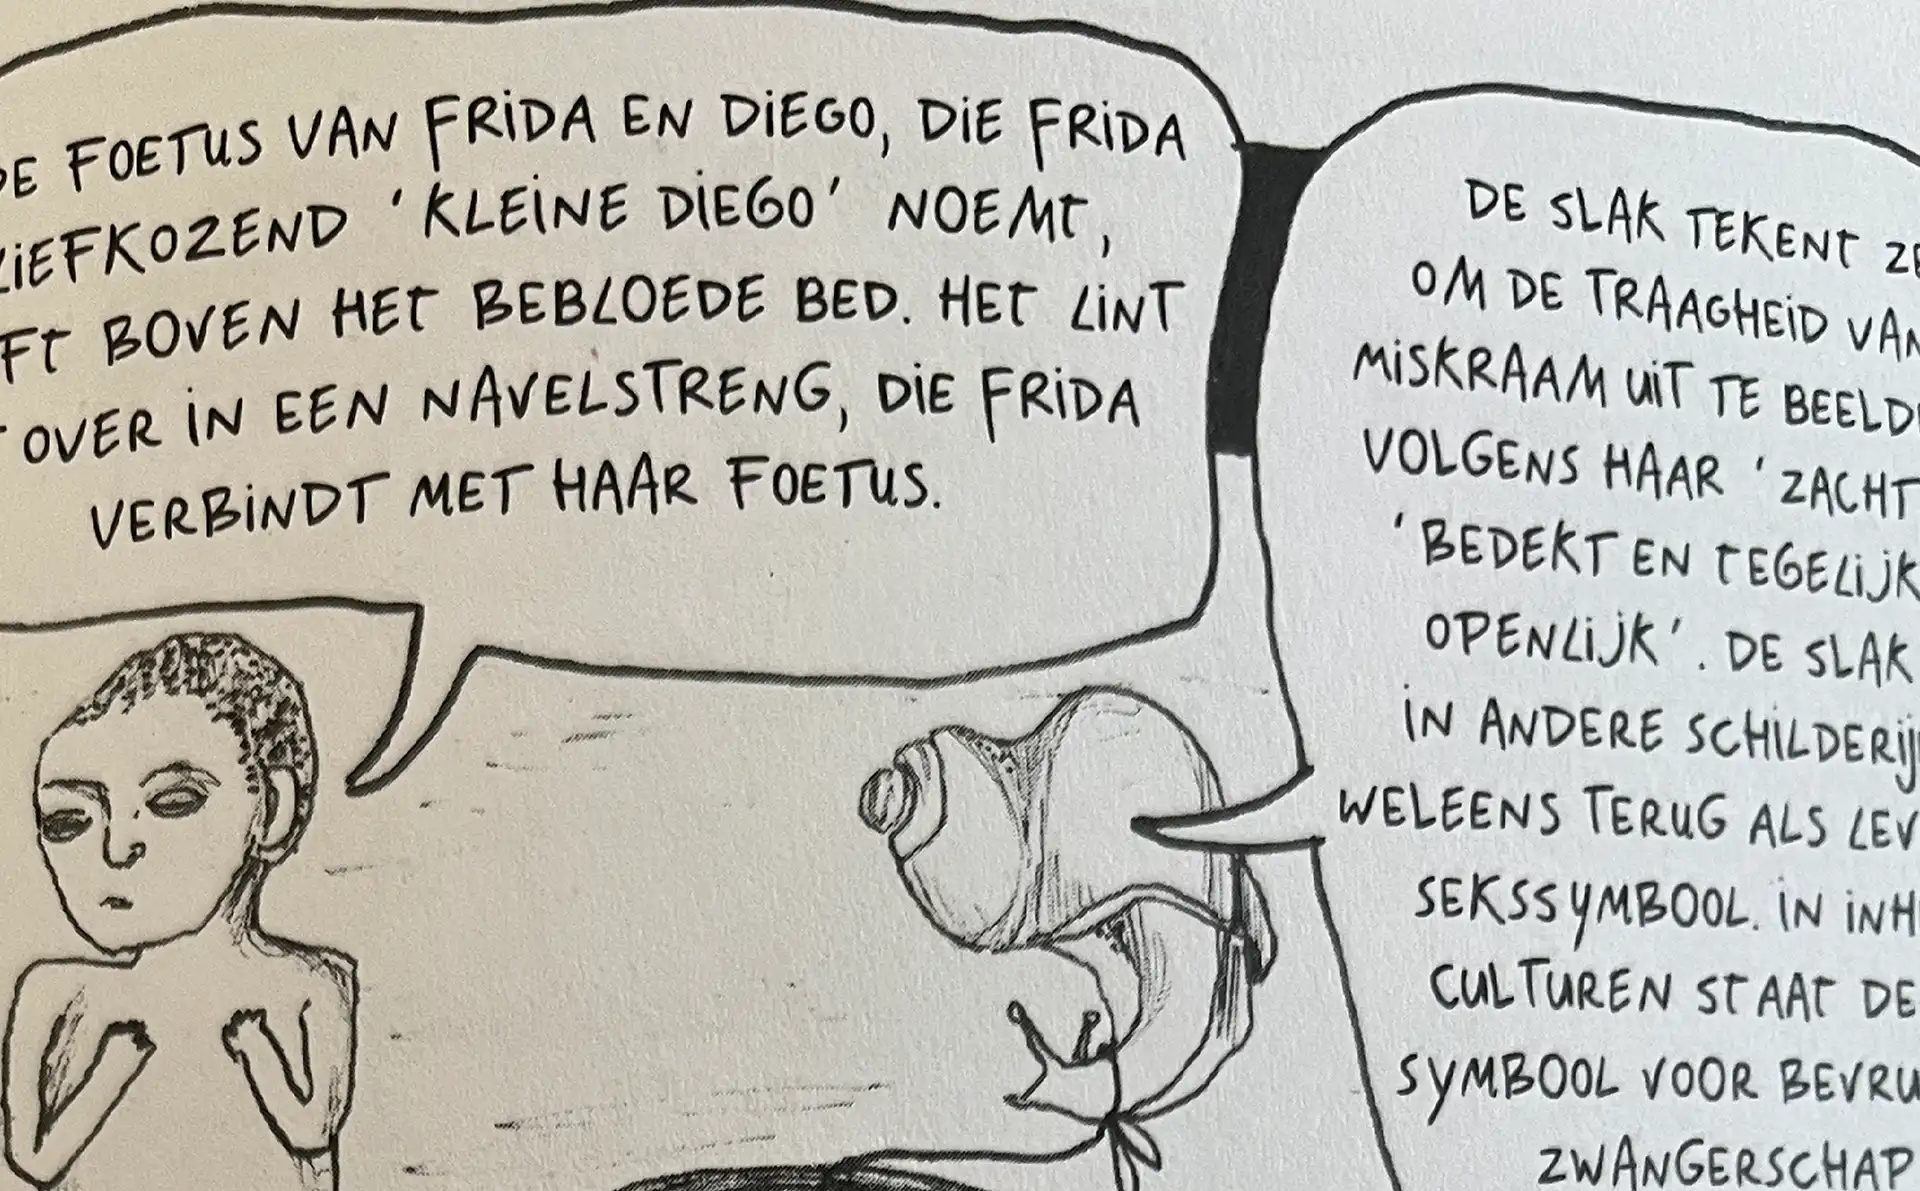 DE FOETUS VAN FRIDA EN DIEGO, DIE FRIDA
LIEFKOZEND 'KLEINE DIEGO' NOEMT,
FT BOVEN HET BEBLOEDE BED. HET LINT
OVER IN EEN NAVELSTRENG, DIE FRIDA
VERBINDT MET HAAR FOETUS.
DE SLAK TEKENT ZE
OM DE TRAAGHEID VAN
MISKRAAM UIT TE BEELD
VOLGENS HAAR 'ZACHT
'BEDEKT EN TEGELIJK
OPENLIJK'. DE SLAK
IN ANDERE SCHILDERIJ
WELEENS TERUG ALS LEV
SEKSSYMBOOL. IN INH
CULTUREN STAAT DE
SYMBOOL VOOR BEVRU
ZWANGERSCHAP